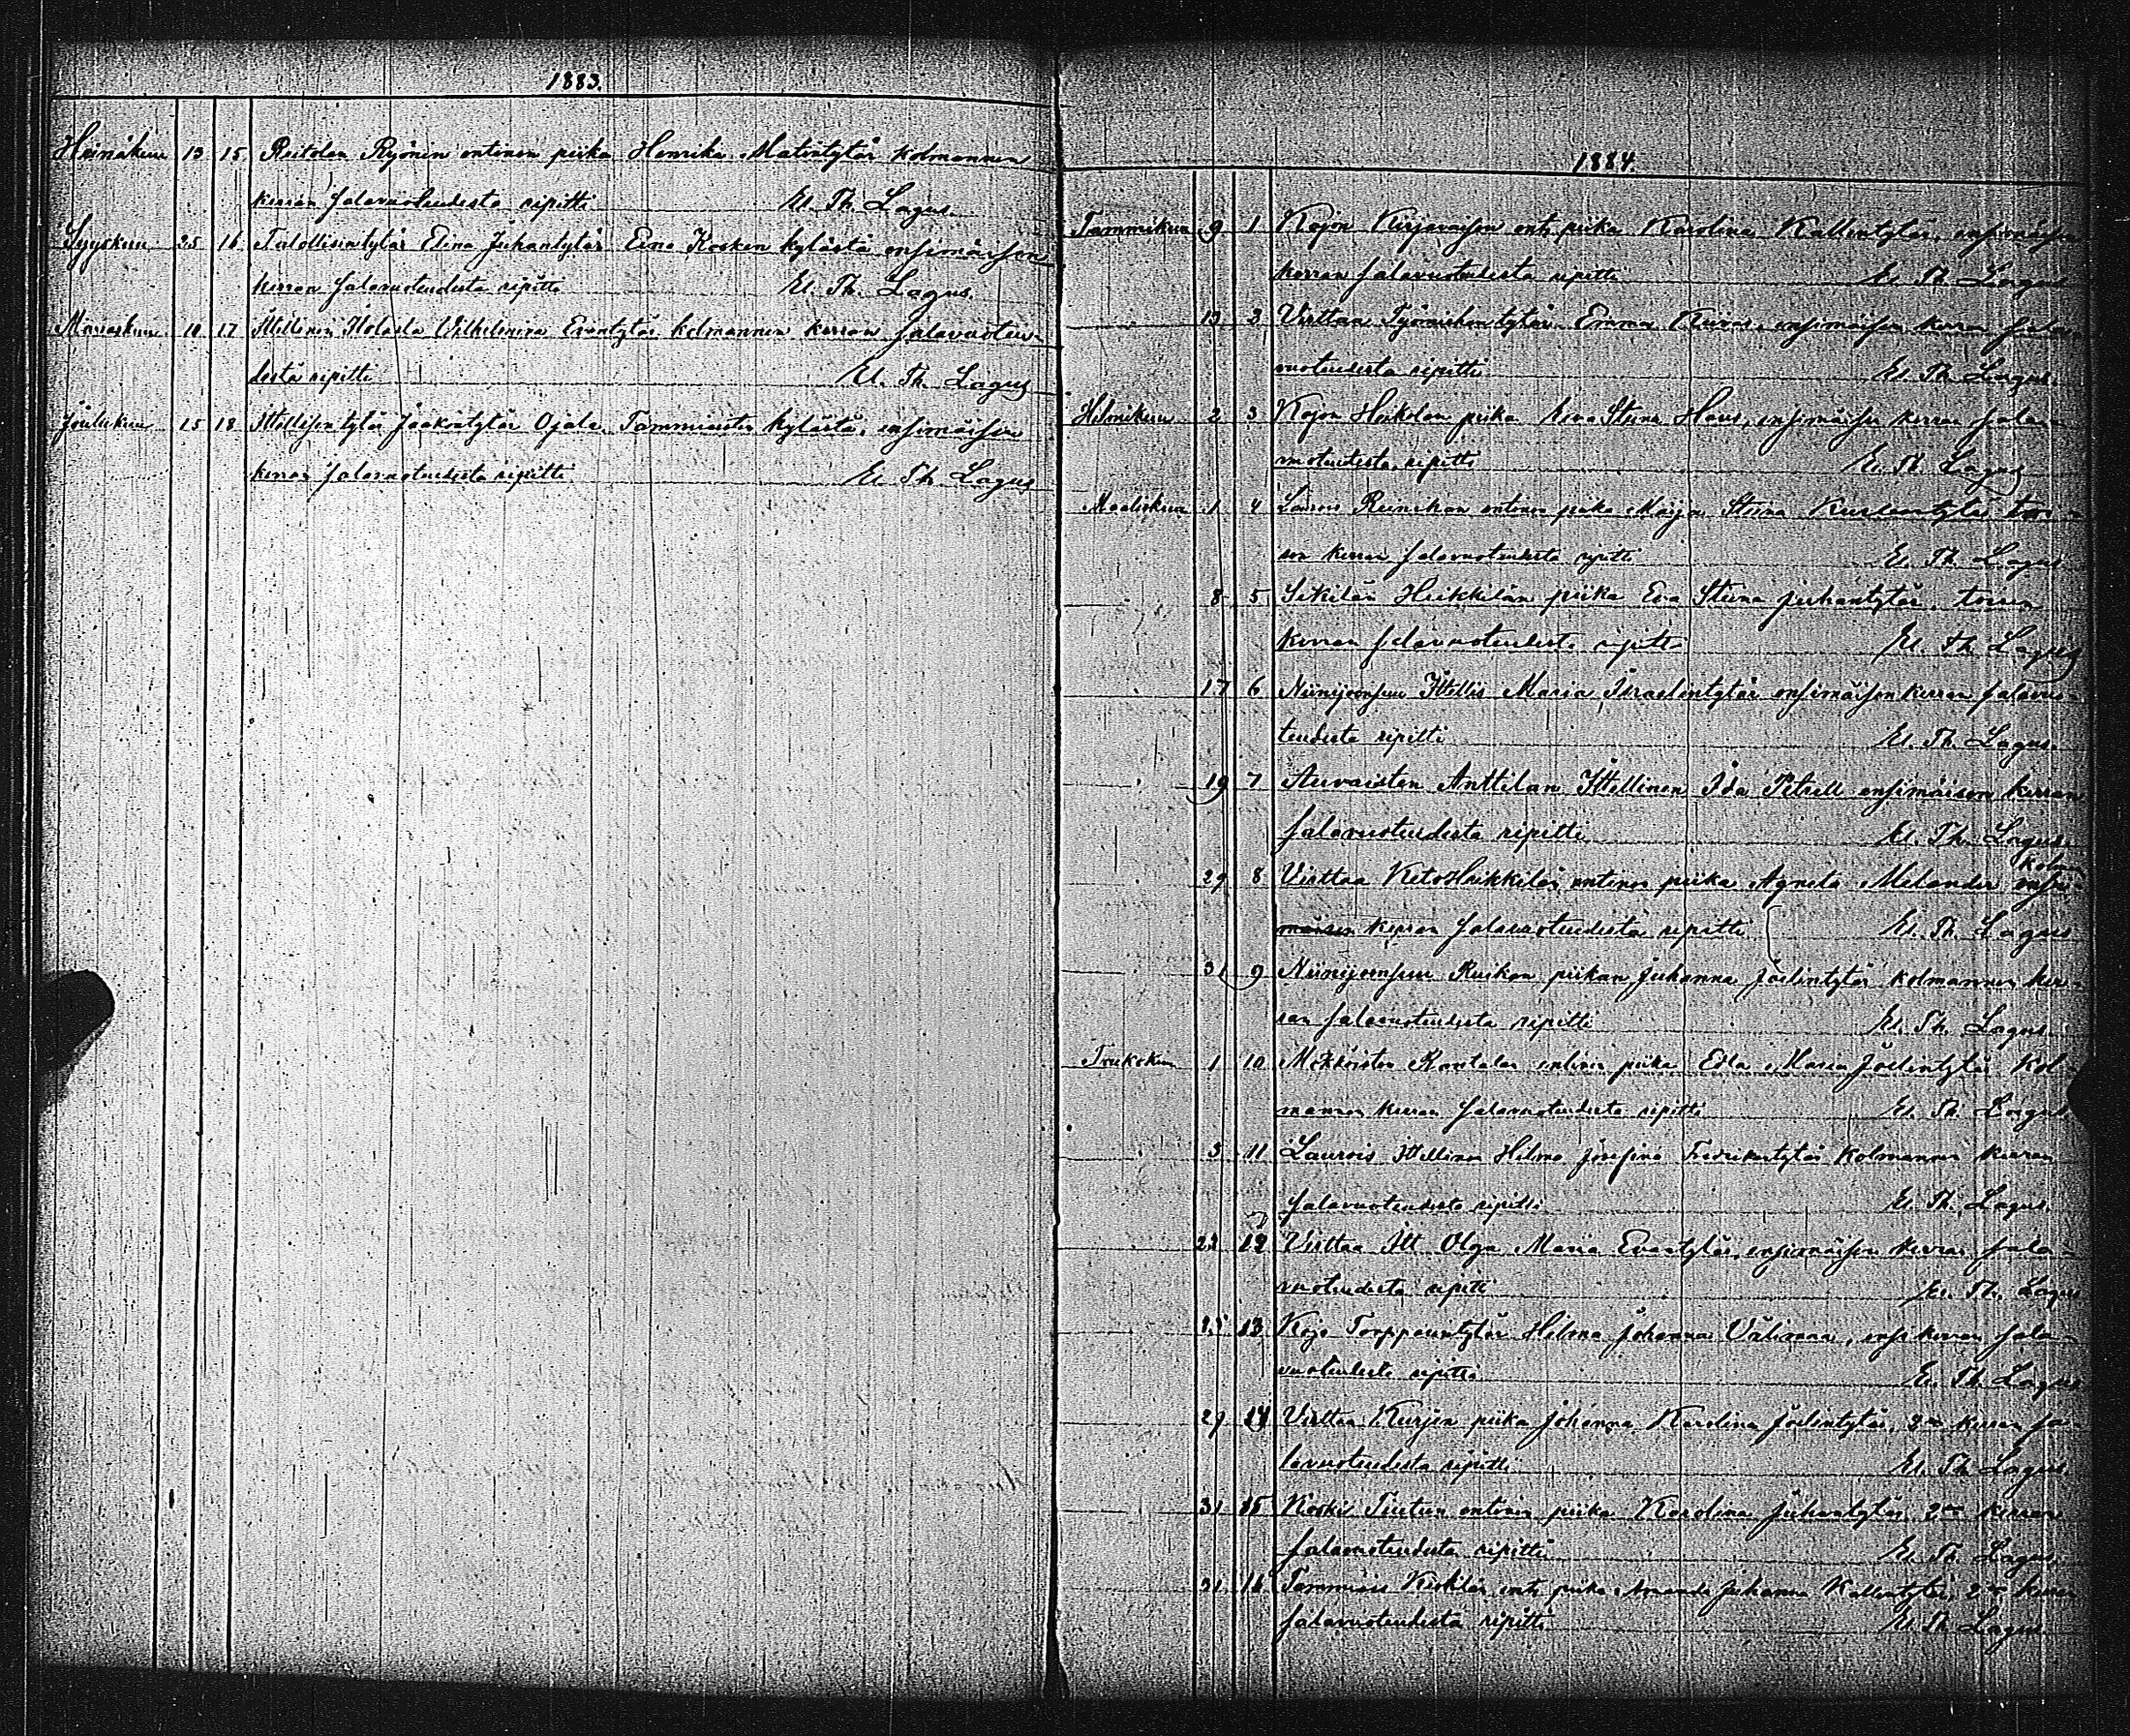 1883.
Heinäkuu 13 15 Reitolan Ryönin entinen piika Henrika Matintytär kolmannen
kerran salavuoteudesta ripitti El. Th. Lagus.
Syyskuu 25 16 Talollisentytär Elina Juhantytär Eino Kosken kylästä ensimäisen
kerran salavuoteudesta ripitti El. Th. Lagus.
Marraskuu 10 17 Ittellinen Vilhelmina Evantytär kolmannen kerran salavuoteu-
desta ripitti El. Th. Lagus
Joulukuu 15 18 Ittellisentytär Jaakontytär Ojala Tammiaisten kylästä, ensimäisen
kerran salavuoteudesta ripitti El. Th. Lagus
1884.
Tammikuu 9 1 Kojon Kirjavaisen ent. piika Karolina Kallentytär, ensimäisen
kerran salavuoteudesta ripitti El. Th. Lagus
13 2 Virttaa Työmiehentytär Emma ensimäisen kerran sala-
vuoteudesta ripitti El. Th. Lagus.
Helmikuu 2 3 Kojon Heikolan piika Eva Stiina ensimäisen kerran sala-
vuoteudesta ripitti El. Th. Lagus
Maaliskuu 1 4 entinen piika Maija Stiina Kustaantytär toi-
sen kerran salavuoteudesta ripitti El. Th. Lagus
8 5 Heikkilän piika Eva Stiina Juhantytär, toisen
kerran salavuoteudesta ripitti El. Th. Lagus
17 6 Niinijoensuu Ittellis Maria Israelintytär ensimäisen kerran salavuo-
teudesta ripitti El. Th. Lagus.
19 7 Auvaisten Anttilan Ittellinen Ida Petrell ensimäisen kerran
salavuoteudesta ripitti El. Th. Lagus.
kolm
29 8 Virttaa KetoHeikkilän entinen piika Agneta Melander ensi-
mäisen kerran salavuoteudesta ripitti El. Th. Lagus
31 9 Niinijoensuu piikan Juhanna Joelintytär kolmannen ker-
ran salavuoteudesta ripitti El. Th. Lagus
Toukokuu 1 10 entinen piika Edla Maria Joelintytär kol
mannen kerran salavuoteudesta ripitti El. Th. Lagus
3 11 Laurois Ittellinen Hilma Josefina Fredrikintytär kolmannen kerran
salavuoteudesta ripitti El. Th. Lagus.
23 12 Virttaa Itt Olga Maria Evantytär, ensimäisen kerran sala-
vuoteudesta ripitti El. Th. Lagus
25 13 Kojo Torpparintytär Helma Johanna ensi kerran sala-
vuoteudesta ripitti El. Th. Lagus
29 14 Virttaa Kurjen piika Johanna Karolina Joelintytär, 2en kerran sa-
lavuoteudesta ripitti El. Th. Lagus
31 15 Koski entinen piika Karolina Juhantytär 2en kerran
salavuoteudesta ripitti El. Th. Lagus.
31 16 ent. piika Amanda Juhanna Kallentytär, 2en kerran
salavuoteudesta ripitti El. Th. Lagus